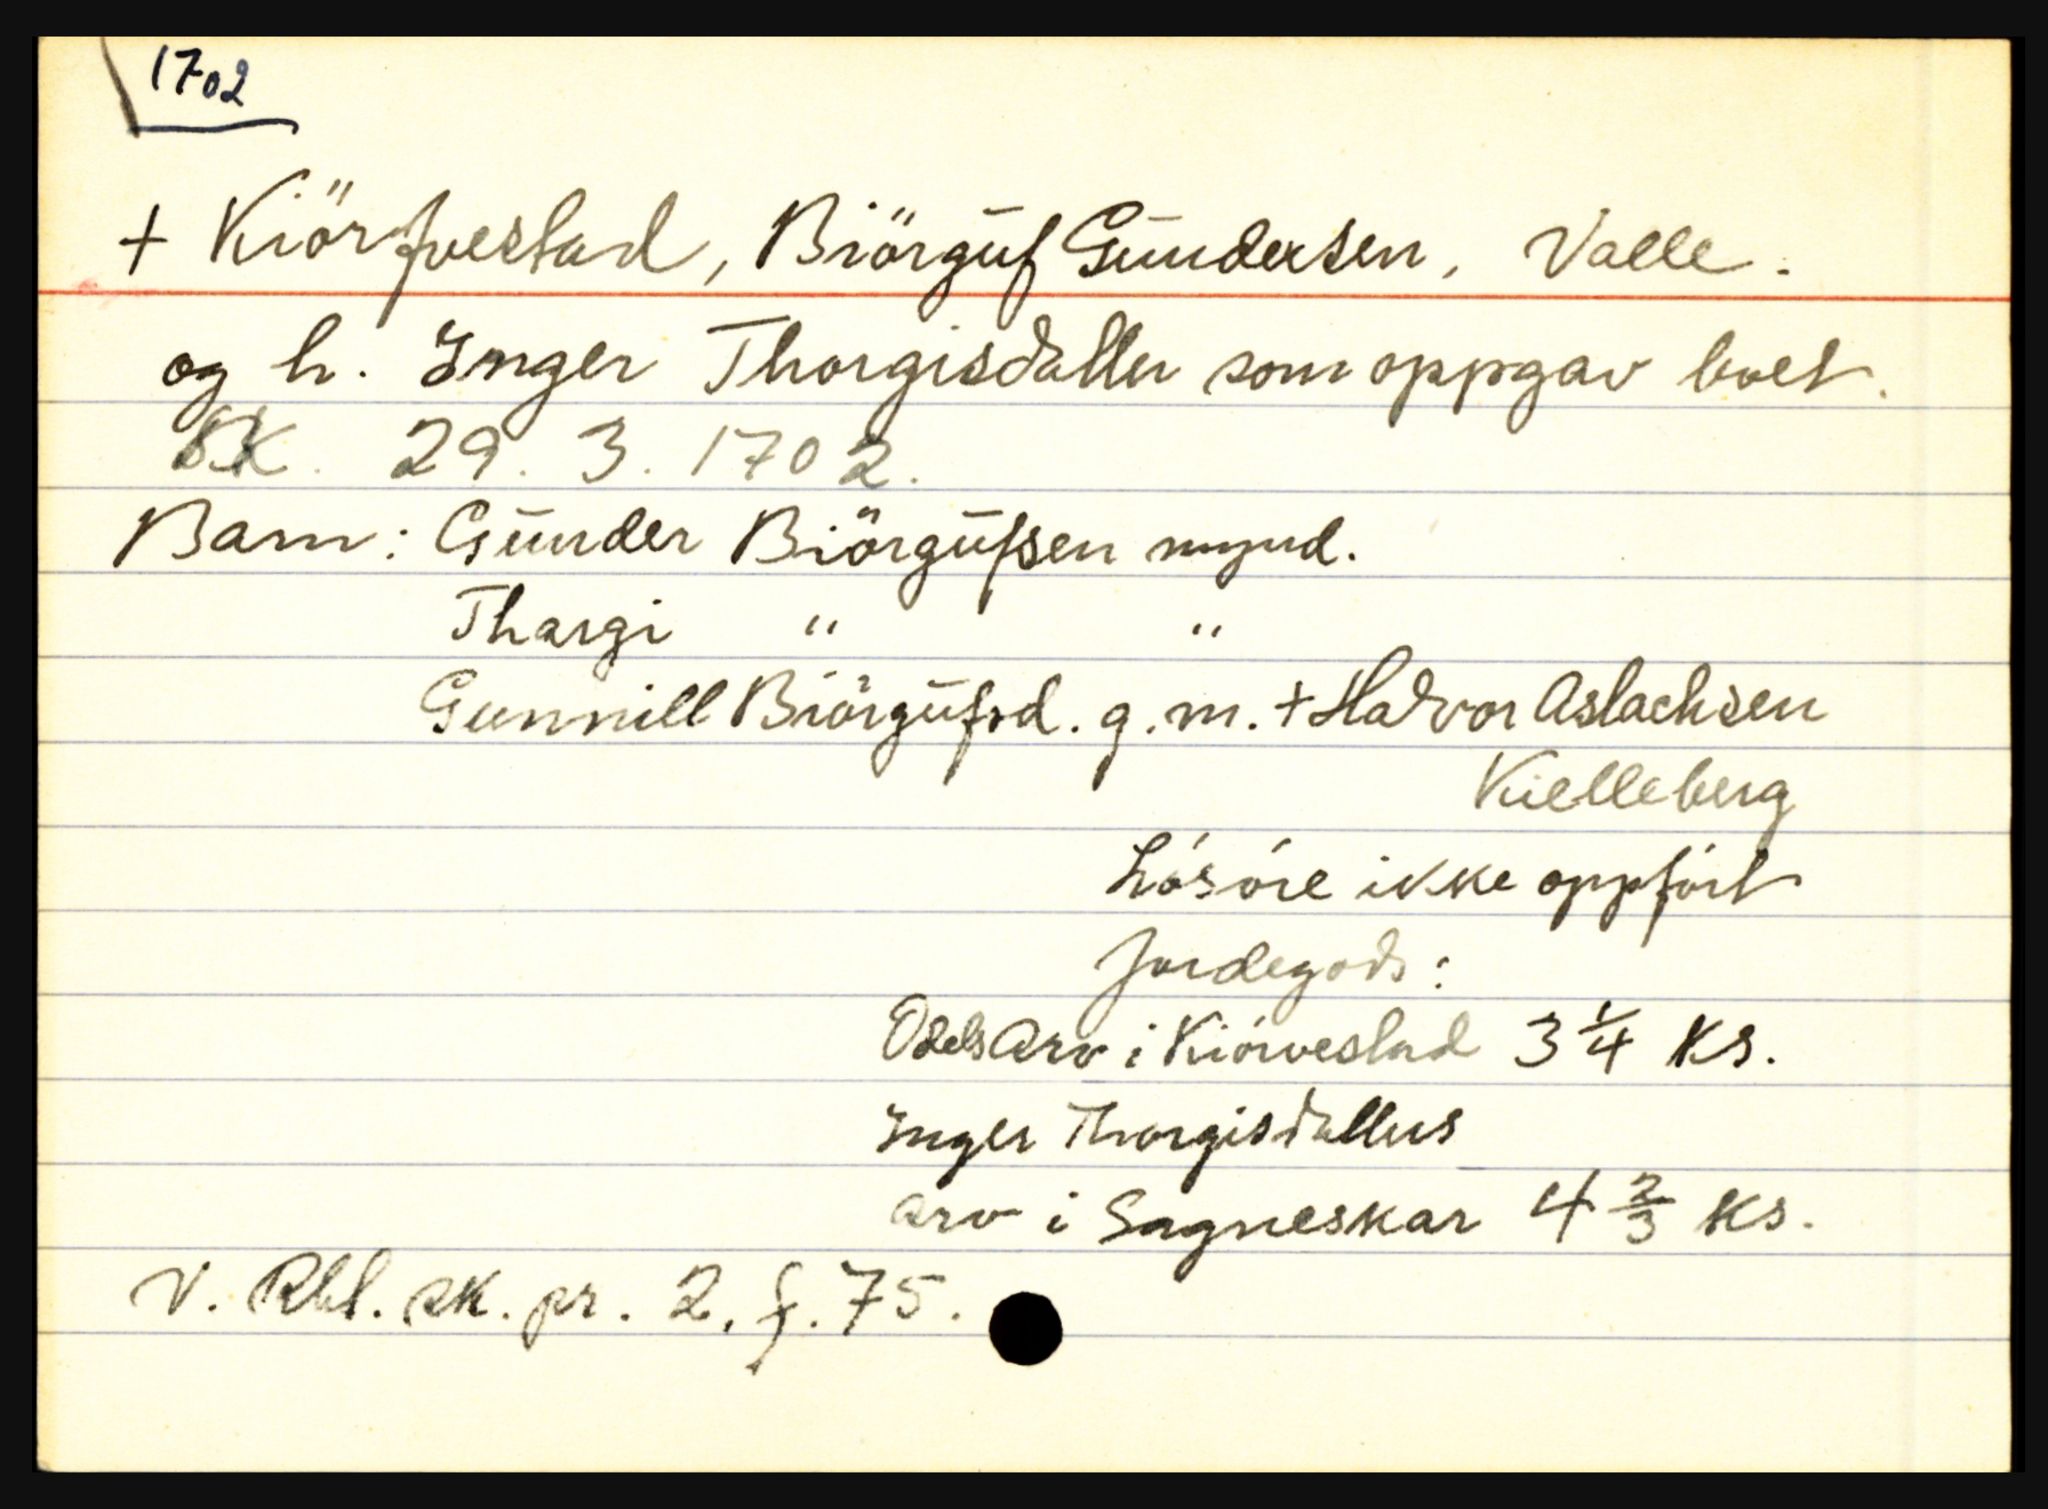 1702
+ Kiörfvestad, Biörguf Gundersen, Valle.
og h. Inger Thorgisdatter som oppgav boet.
SK. 29. 3. 1702.
Barn: Gunder Biörgufsen mynd.
Thargi " "
Gunnill Biörgufsd. g. m. + Halvor Aslachsen
Kielleberg
Lösöre ikke oppfört
Jordegods:
Odelsarv i Kiörvestad 3 1/4 ks.
Inger Thorgisdatters
arv i Sagneskar 4 2/3 ks.
V. Rbl. sk. pr. 2, f. 75.